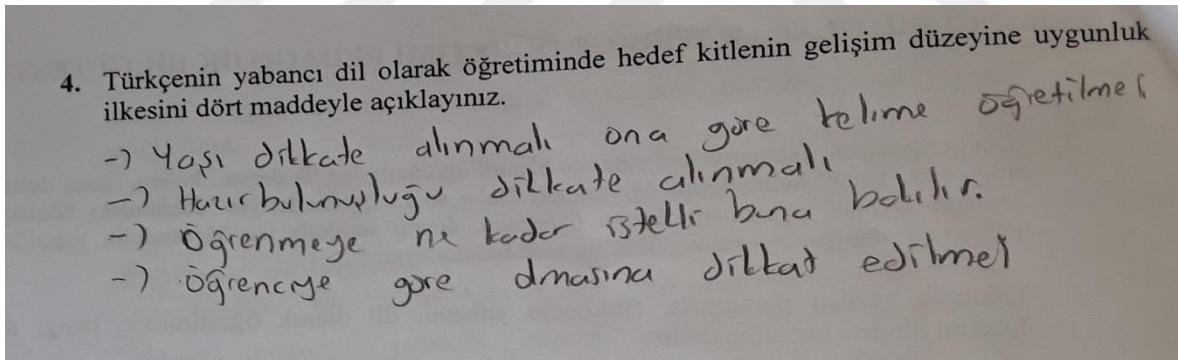 4. Türkçenin yabancı dil olarak öğretiminde hedef kitlenin gelişim düzeyine uygunluk
ilkesini dört maddeyle açıklayınız.
-) Yaşı dikkate alınmalı ona göre kelime öğretilmeli
-) Hazırbulunuşluğu dikkate alınmalı
-) Öğrenmeye ne kadar istekli buna bakılır.
-) öğrenciye göre olmasına dikkat edilmeli